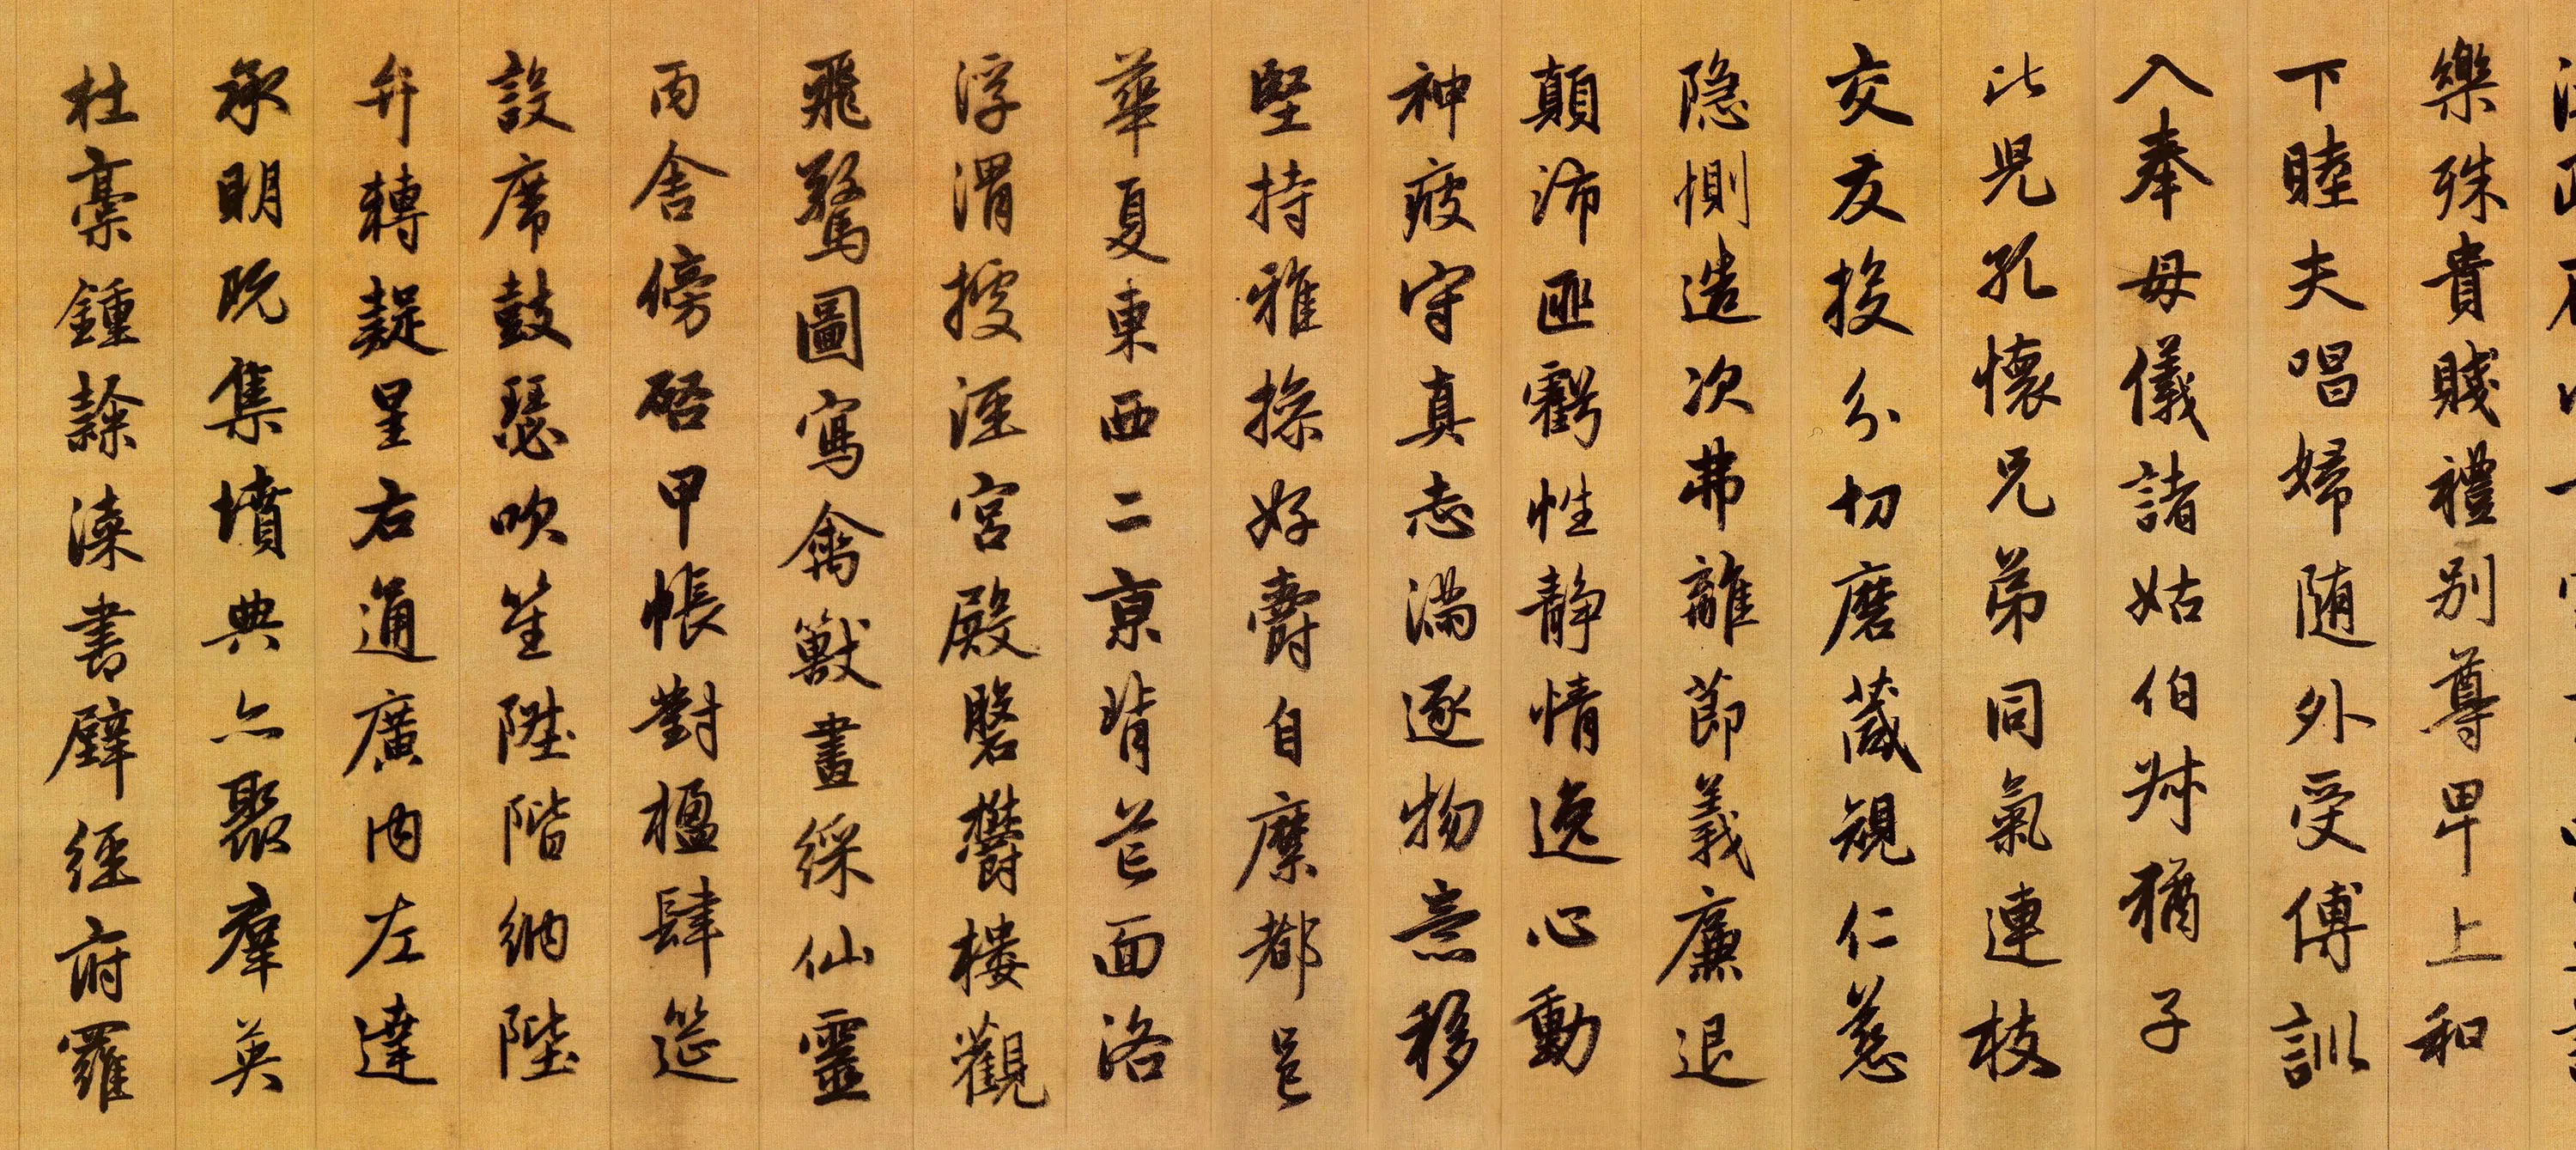 樂殊貴賤禮别尊卑上和
下睦夫唱婦随外受傅訓
入奉母儀諸姑伯叔猶子
比兒孔懷兄弟同氣連枝
交友投分切磨箴規仁慈
隐惻造次弗離節義廉退
顛沛匪虧性静情逸心動
神疲守真志滿逐物意移
堅持雅操好爵自縻都邑
華夏東西二京背芒面洛
浮渭據涇宮殿磐欝樓觀
飛驚圖寫禽獸畫綵仙靈
丙舍傍啓甲帳對楹肆筵
設席鼓瑟吹笙陞階納陛
弁轉疑星右通廣内左達
承明既集墳典亦聚羣英
杜稾鍾隸漆書壁經府羅